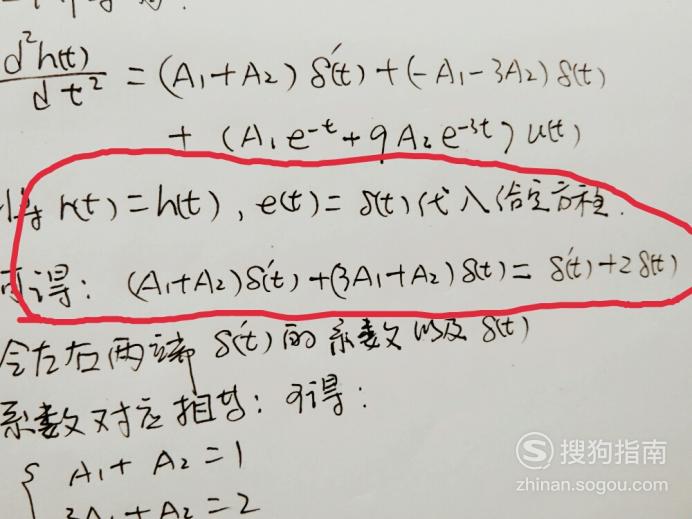 d²h(t)/dt² = (A₁+A₂)δ'(t)+(-A₁-3A₂)δ(t)
+ (A₁e^{-t}+9A₂e^{-3t})u(t)
r(t)=h(t), e(t)=δ(t)代入给定方程.
可得: (A₁+A₂)δ'(t)+(3A₁+A₂)δ(t)= δ'(t)+2δ(t)
令左右两端δ'(t)的系数以及δ(t)
系数对应相等: 可得:
{ A₁+A₂=1
3A₁+A₂=2
搜狗指南
zhinan.sogou.com